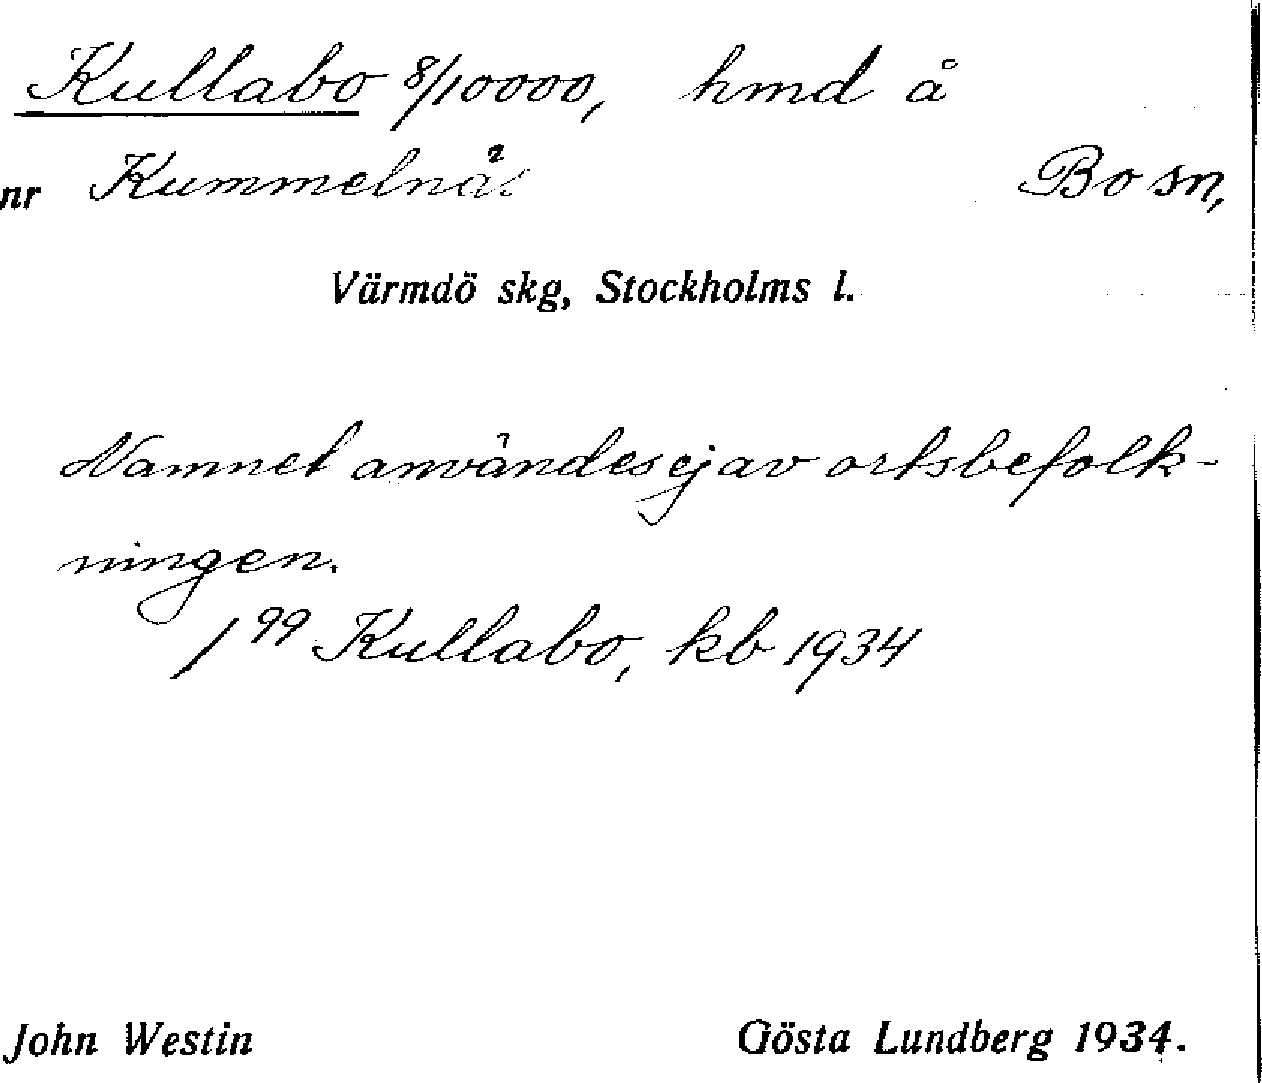 Kullabo 8/10000, hmd å
nr Kummelnäs Bo sn,
Värmdö skg, Stockholms l.
Namnet användes ej av ortsbefolk-
ningen.
1⁹⁹ Kullabo, kb 1934
John Westin Gösta Lundberg 1934.